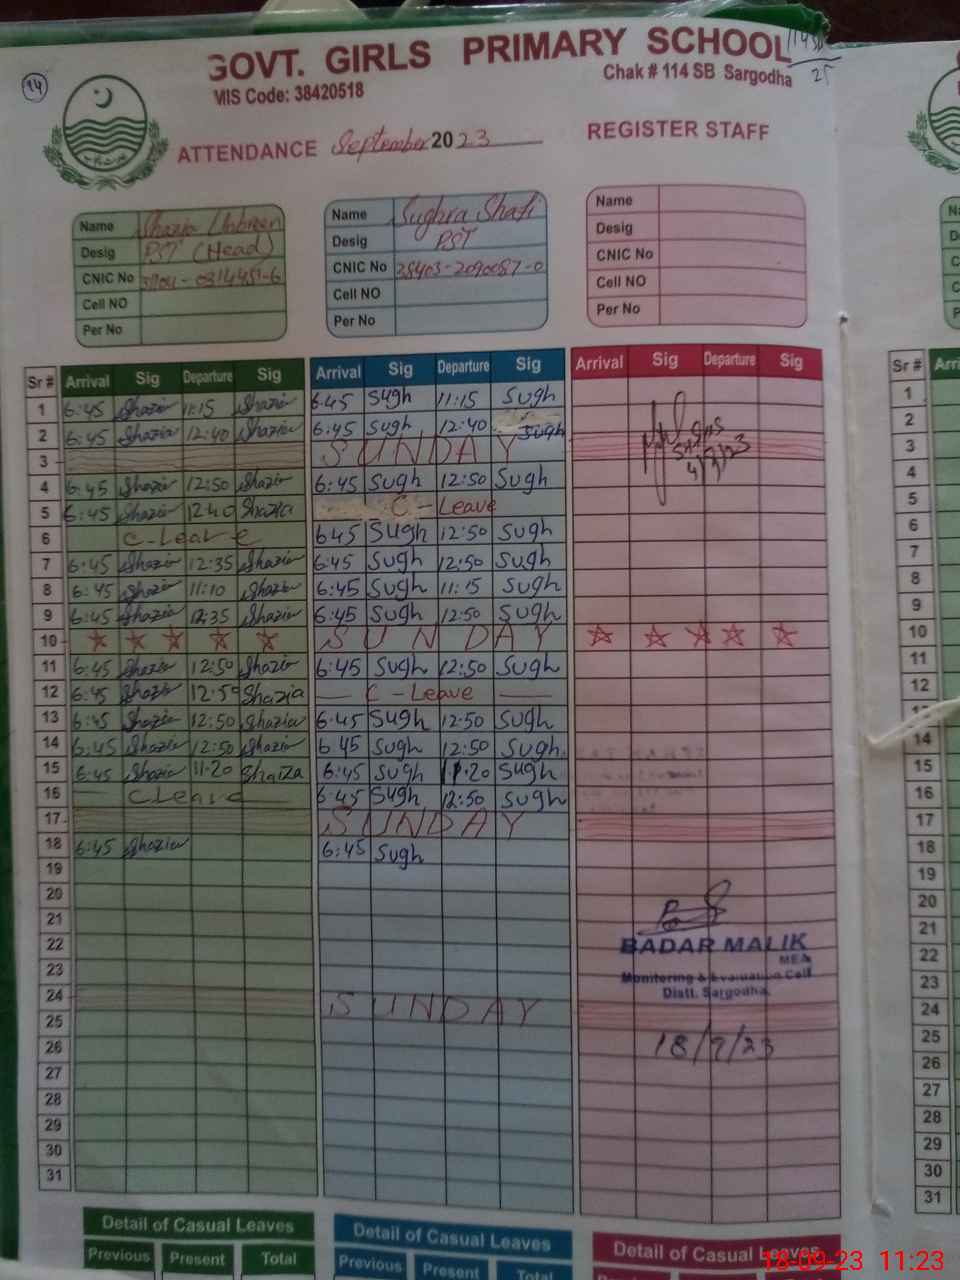 14
GOVT. GIRLS PRIMARY SCHOOL
Chak # 114 SB Sargodha
MIS Code: 38420518
ATTENDANCE September 2023 REGISTER STAFF
Name Shazia Ambreen
Desig PST (Head)
CNIC No
Cell NO
Per No
Name Sughra Shafi
Desig PST
CNIC No 38403-2090087-0
Cell NO
Per No
Name
Desig
CNIC No
Cell NO
Per No
Sr # Arrival Sig Departure Sig Arrival Sig Departure Sig Arrival Sig Departure Sig
1 6:45 Shazia 11:15 Shazia 6:45 Sugh 11:15 Sugh
2 6:45 Shazia 12:40 Shazia 6:45 Sugh 12:40 Sugh
3 SUNDAY
4 6:45 Shazia 12:50 Shazia 6:45 Sugh 12:50 Sugh
5 6:45 Shazia 12:40 Shazia C - Leave
6 C-Leave 6 45 Sugh 12:50 Sugh
7 6:45 Shazia 12:35 Shazia 6:45 Sugh 12:50 Sugh
8 6:45 Shazia 11:10 Shazia 6:45 Sugh 11:15 Sugh
9 6:45 Shazia 12:35 Shazia 6:45 Sugh 12:50 Sugh
10 SUNDAY
11 6:45 Shazia 12:50 Shazia 6:45 Sugh 12:50 Sugh
12 6:45 Shazia 12:59 Shazia C - Leave
13 6:45 Shazia 12:50 Shazia 6:45 Sugh 12:50 Sugh
14 6:45 Shazia 12:50 Shazia 6 45 Sugh 12:50 Sugh
15 6:45 Shazia 11:20 Shaiza 6:45 Sugh 11:20 Sugh
16 C Leave 6:45 Sugh 12:50 Sugh
17 SUNDAY
18 6:45 Shazia 6:45 Sugh
19
20
21
22
23
24 SUNDAY
25
26
27
28
29
30
31
4/9/23
BADAR MALIK
MEA
Monitoring & Evaluation Cell
Distt. Sargodha.
18/9/23
Detail of Casual Leaves
Previous Present Total
Detail of Casual Leaves
Previous Present Total
Detail of Casual Leaves
Sr # Arri
1
2
3
4
5
6
7
8
9
10
11
12
14
15
16
17
18
19
20
21
22
23
24
25
26
27
28
29
30
31
18-09-23 11:23